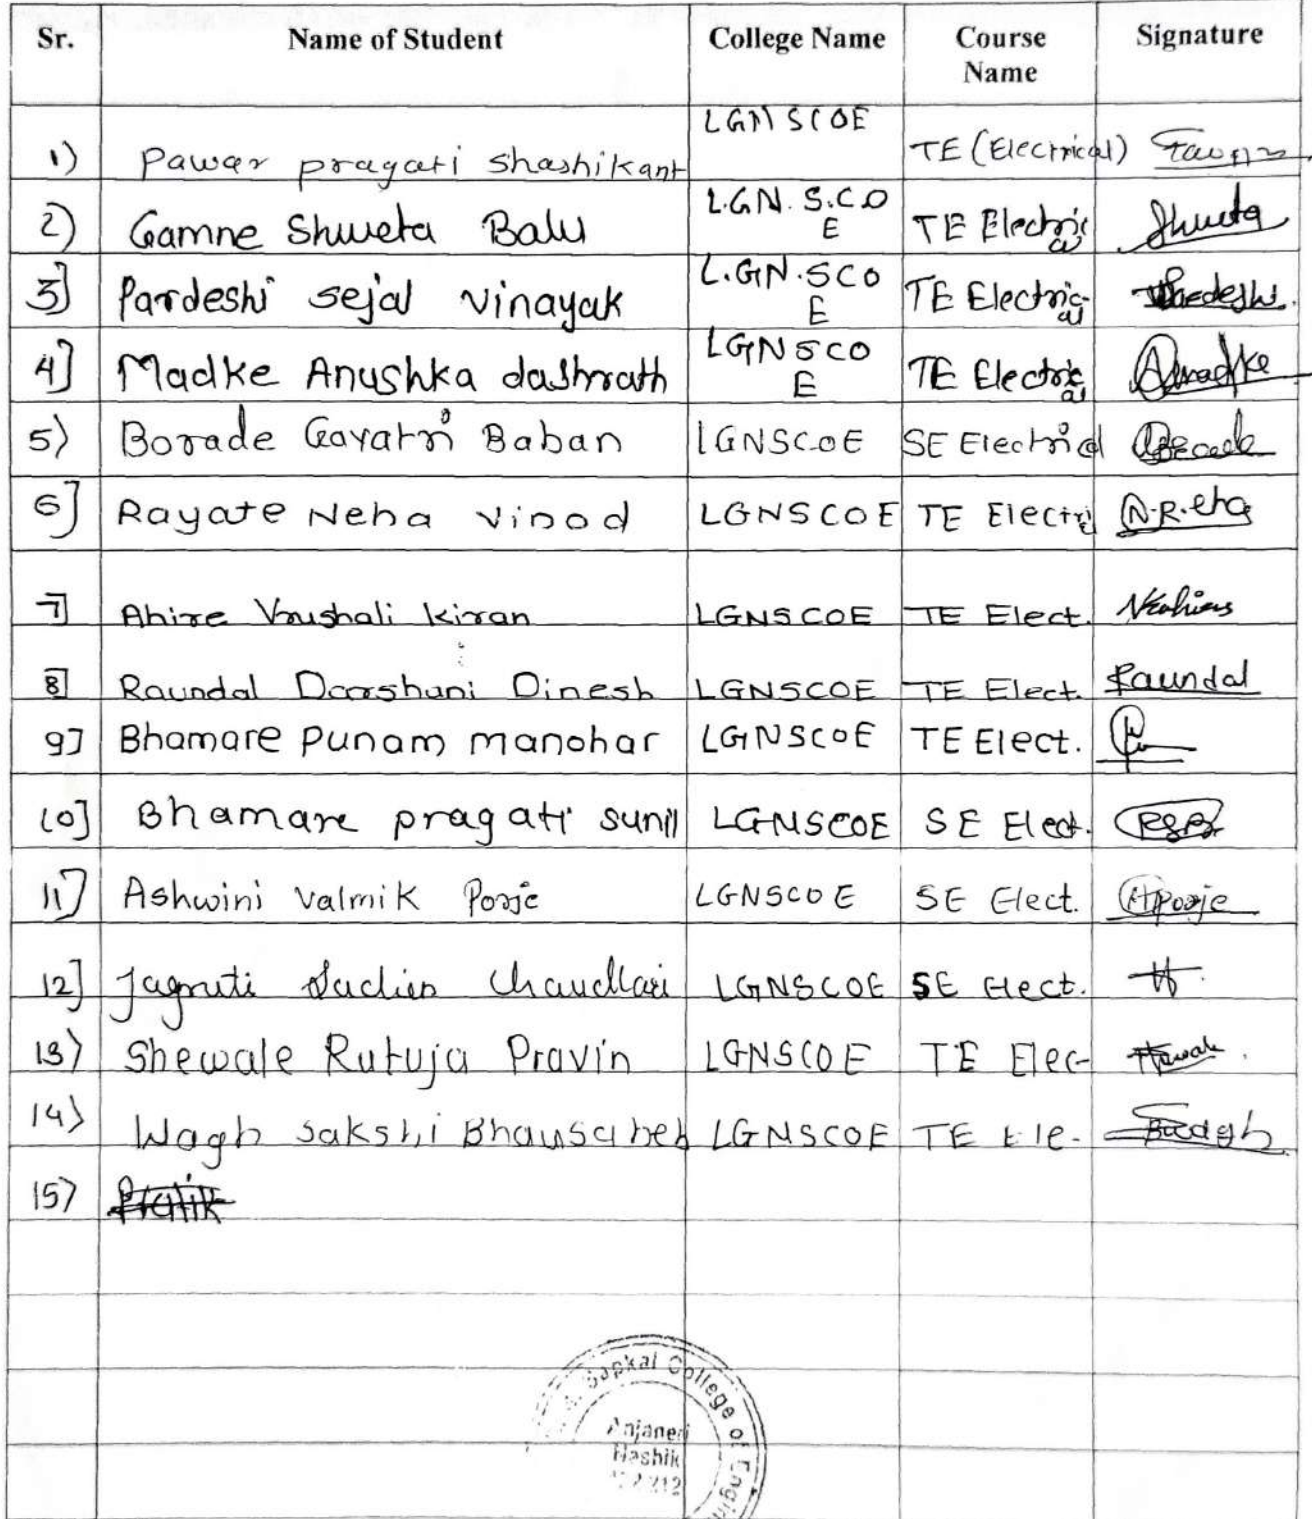 Sr. Name of Student College Name Course Name Signature
1) Pawar pragati shashikant LGNSCOE TE (Electrical)
2) Gamne Shweta Balu L.G.N. S.C.O E TE Electrical Shweta
3] Pardeshi sejal vinayak L.G.N.SCO E TE Electrical
4] Madke Anushka dashrath LGNSCO E TE Electrical
5) Borade Gayatri Baban LGNSCOE SE Electrical
6] Rayate Neha vinod LGNSCOE TE Electri N.R.eha
7] Ahire Vrushali kiran LGNSCOE TE Elect.
8] Raundal Darshani Dinesh LGNSCOE TE Elect. Raundal
9] Bhamare Punam manohar LGNSCOE TE Elect.
10] Bhamare pragati sunil LGNSCOE SE Elect.
11] Ashwini Valmik Porje LGNSCOE SE Elect. Aporje
12] Jagruti Chaudhari LGNSCOE SE Elect.
13) Shewale Rutuja Pravin LGNSCOE TE Elec-
14) Wagh sakshi Bhausaheb LGNSCOE TE Ele.
15) Pratik
Sapkal College of
Anjaneri
Nashik